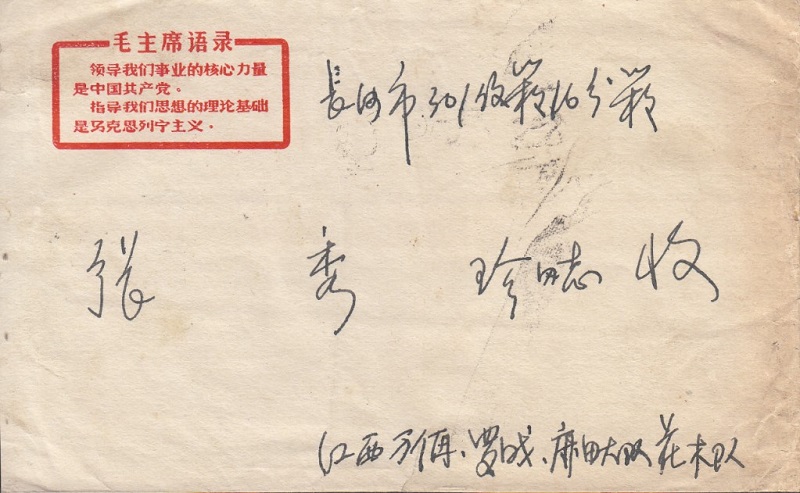 毛主席语录
领导我们事业的核心力量
是中国共产党。
指导我们思想的理论基础
是马克思列宁主义.
長沙市301收箱16分箱
张 秀 珍同志 收
江西万载、罗城、麻田大队花木队